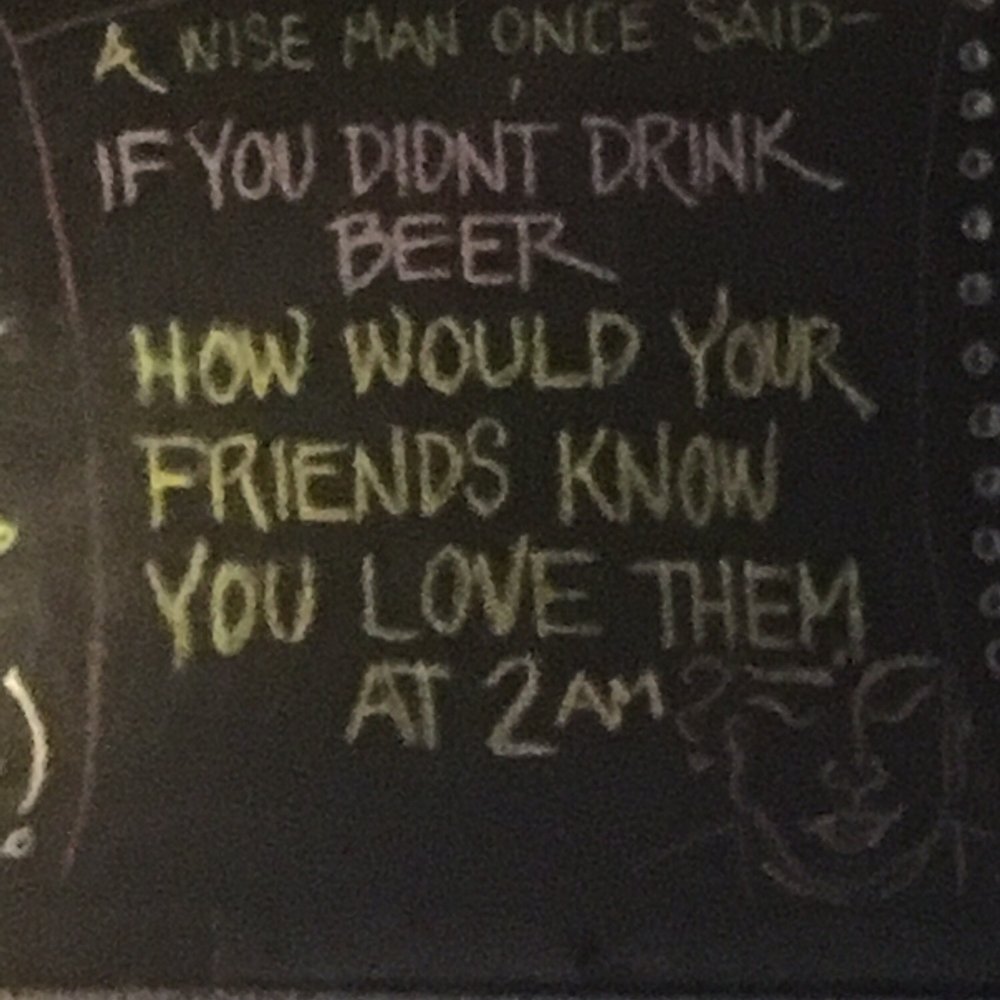 A WISE MAN ONCE SAID-
IF YOU DIDNT DRINK
BEER
HOW WOULD YOUR
FRIENDS KNOW
YOU LOVE THEM
AT 2AM?